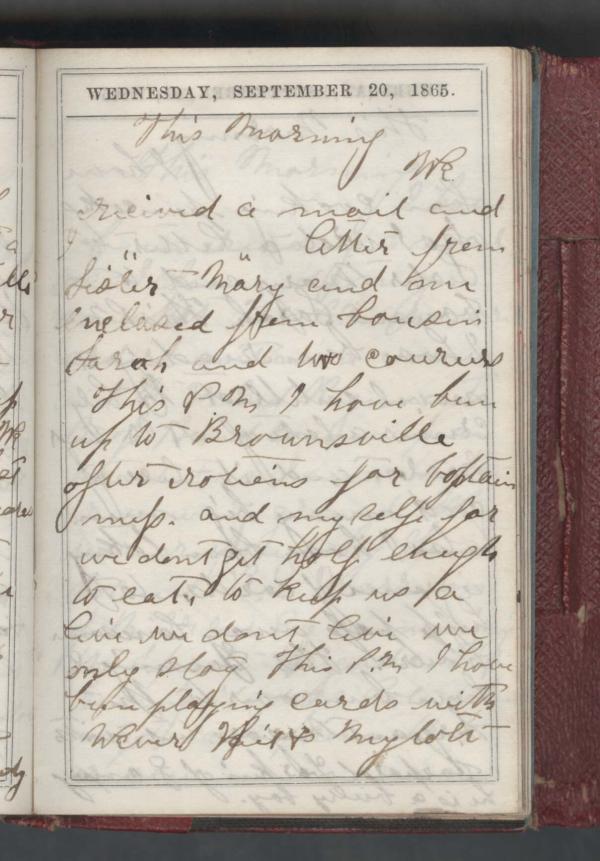 WEDNESDAY, SEPTEMBER 20, 1865.
This Morning
We
recived a mail and
I letter from
Sister Mary and one
inclosed from Cousin
Sarah and two
This P M I have bin
up to Brownsville
after rations for Captain
mess. and my self for
we dont get half enugh
to eat, to keep us a
live we dont live we
only stay This P.M I have
bin playing cards with